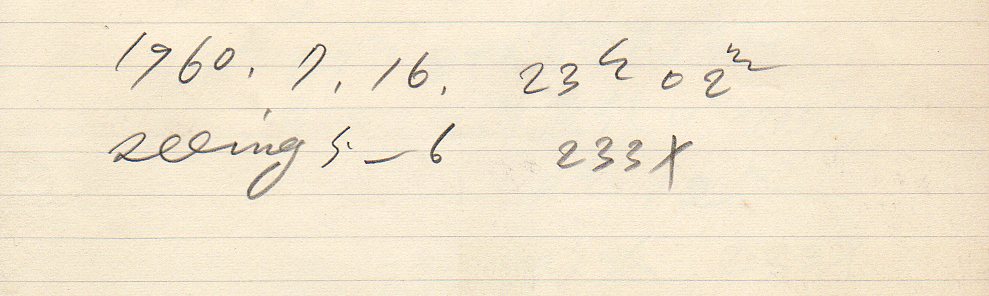 1960. 7. 16. 23h 02m
seeing 5-6 233X